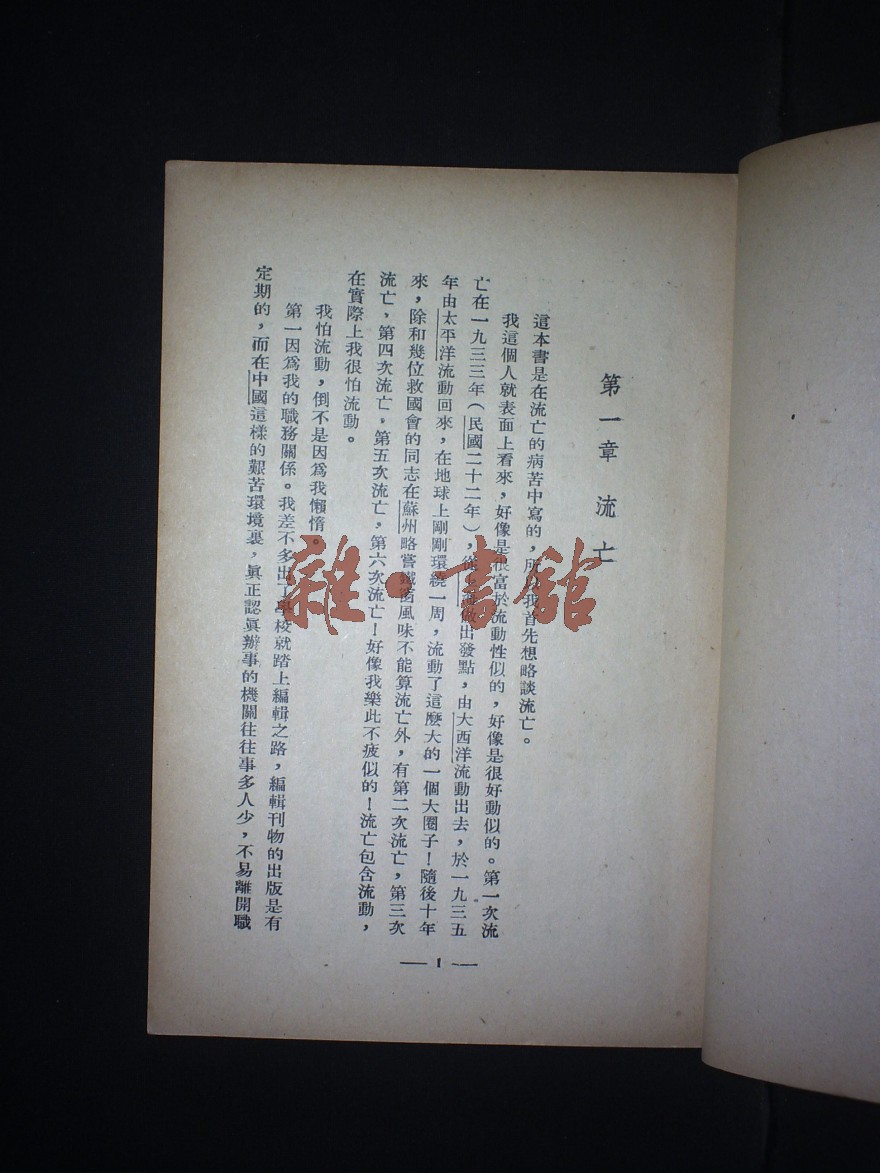 第一章 流亡
這本書是在流亡的病苦中寫的，所我首先想略談流亡。
我這個人就表面上看來，好像是很富於流動性似的，好像是很好動似的。第一次流
亡在一九三三年（民國二十二年），做出發點，由大西洋流動出去，於一九三五
年由太平洋流動回來，在地球上剛剛環繞一周，流動了這麼大的一個大圈子！隨後十年
來，除和幾位救國會的同志在蘇州略嘗鐵窗風味不能算流亡外，有第二次流亡，第三次
流亡，第四次流亡，第五次流亡，第六次流亡！好像我樂此不疲似的！流亡包含流動，
在實際上我很怕流動。
我怕流動，倒不是因爲我懶惰。
第一因爲我的職務關係。我差不多出了學校就踏上編輯之路，編輯刊物的出版是有
定期的，而在中國這樣的艱苦環境裏，眞正認眞辦事的機關往往事多人少，不易離開職
— 1 —
雜·書館